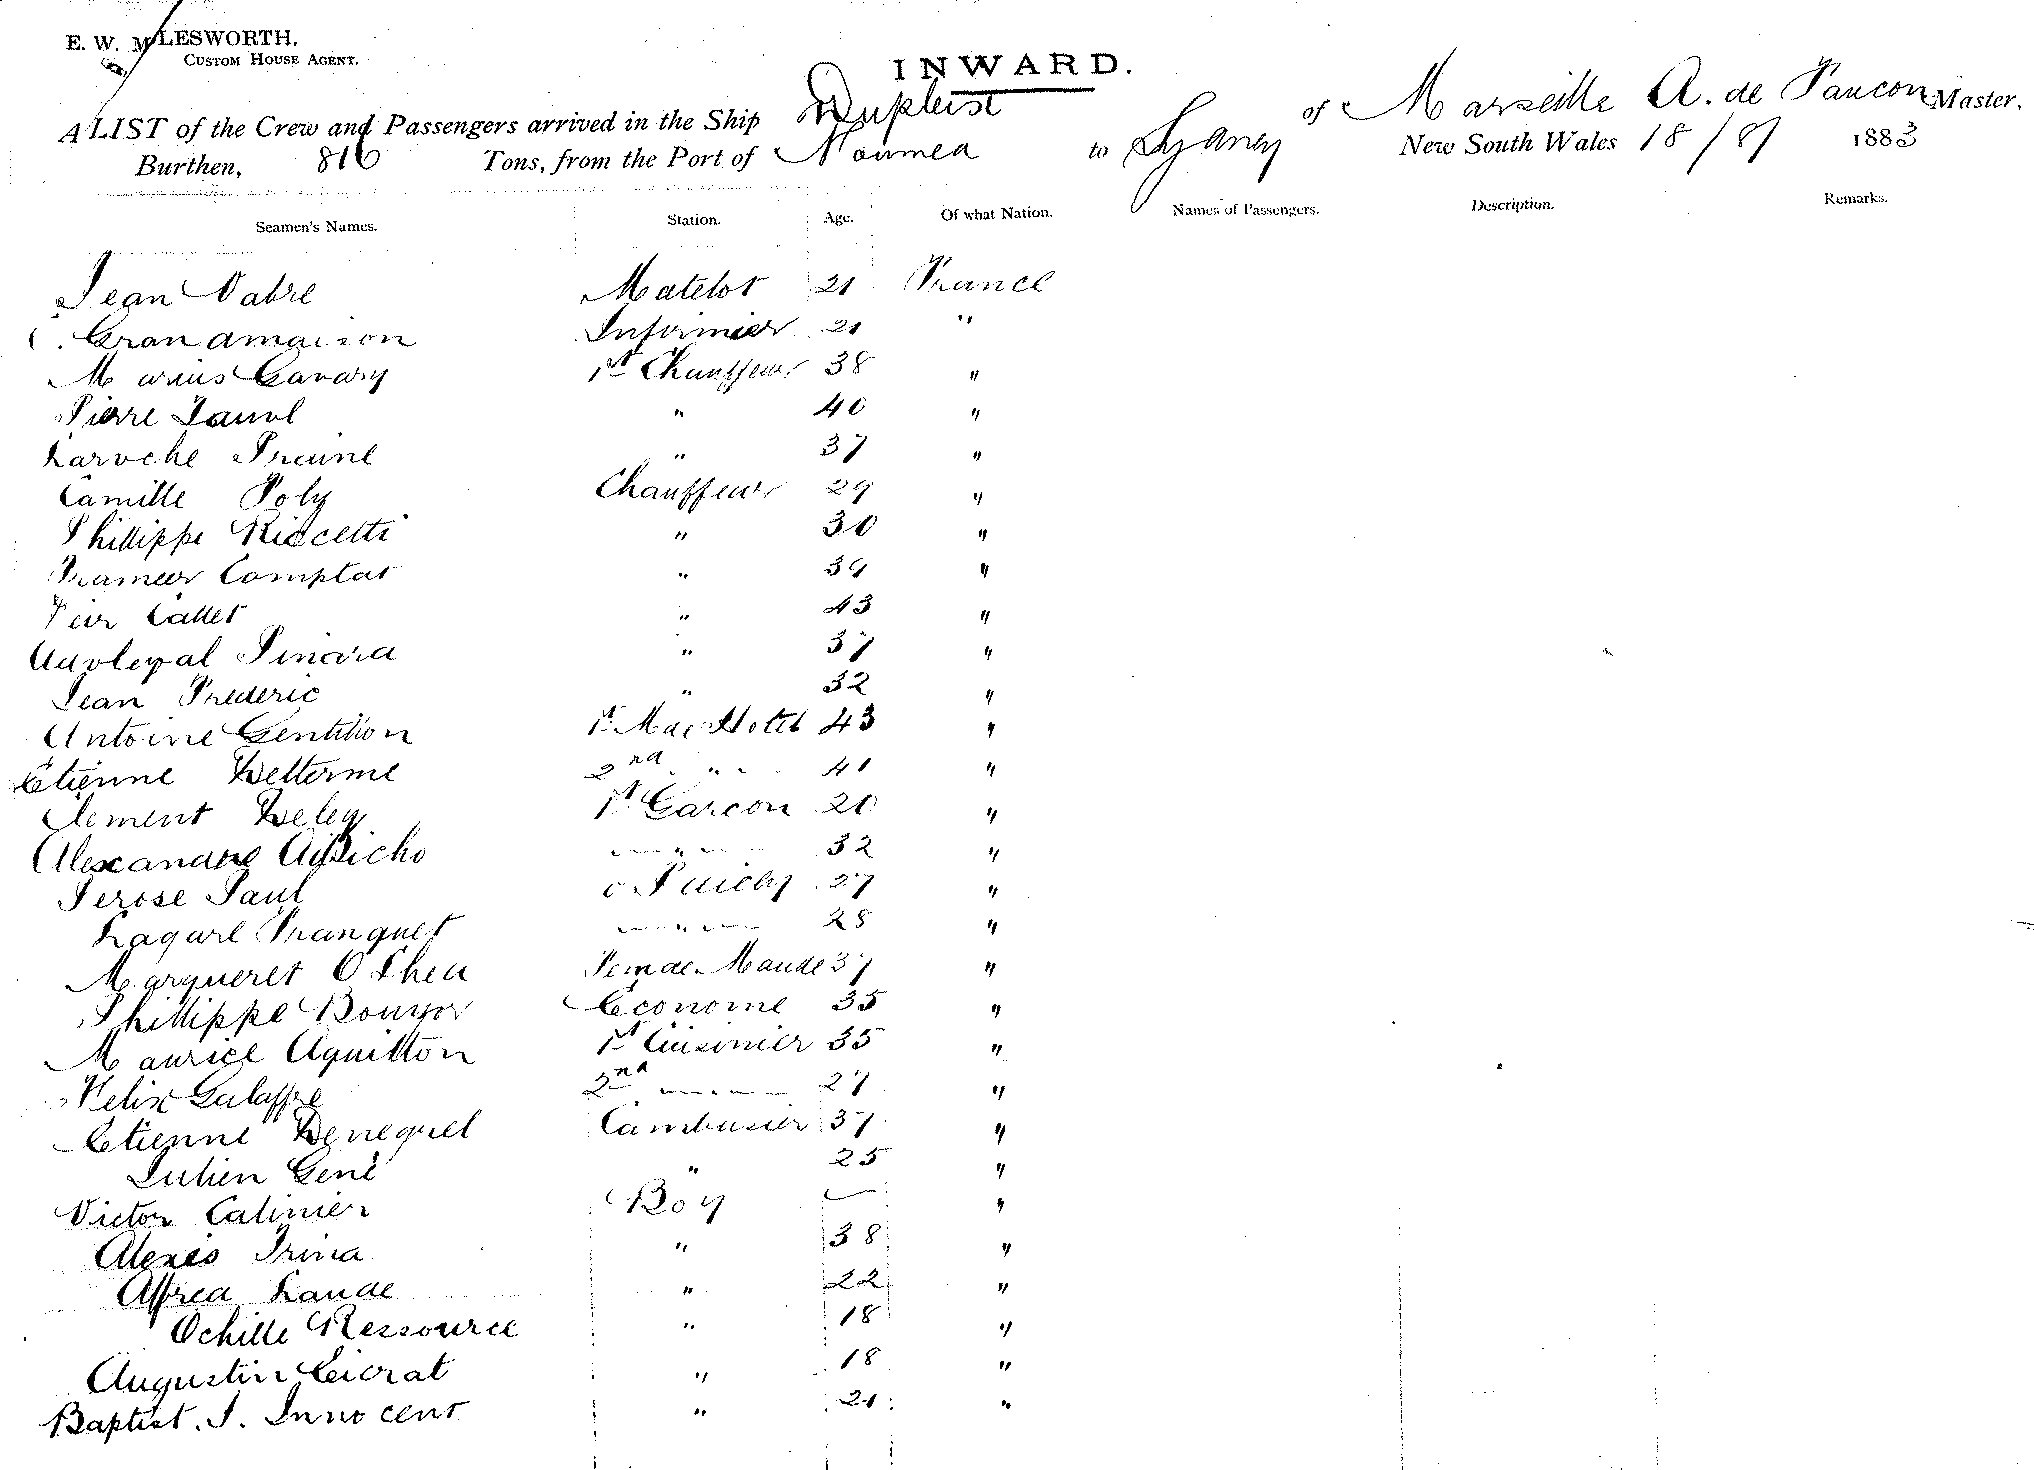 E. W. MOLESWORTH.
CUSTOM HOUSE AGENT.
INWARD.
A LIST of the Crew and Passengers arrived in the Ship Dupleist of Marseille A. de Faucon Master.
Burthen, 816 Tons, from the Port of Noumea to Sydney New South Wales 18/8/ 1883
Seamen's Names. Station. Age. Of what Nation. Names of Passengers. Description. Remarks.
Jean Vabre Matelot 21 France
Grandmaison Infirmier 21 "
Marius Gavary 1st Chauffeur 38 "
Pierre " 40 "
Laroche " 37 "
Camille Poly Chauffeur 29 "
Phillippe Riccetti " 30 "
Comptat " 39 "
Callet " 43 "
" 37 "
Jean Frederic " 32 "
Antoine Gentilion 1st Mac Hotel 43 "
Etienne Delterme 2nd " 41 "
Clement Deley 1st Garcon 20 "
Alexandre " 32 "
Ferose Paul 27 "
Lagarl Franquet " 28 "
Margueret O'Shea Femde Maude 37 "
Phillippe Bouyor Econome 35 "
Maurice Aquitton 1st Cuisinier 35 "
Felix Galaffre 2nd " 27 "
Etienne Denequel Cambusier 37 "
Julien Gene " 25 "
Victor Calinier Boy — "
Alexis Irina " 38 "
Alfred Lande " 22 "
Ochille Ressource " 18 "
Augustin Ceicrat " 18 "
Baptist. J. Innocent " 21 "